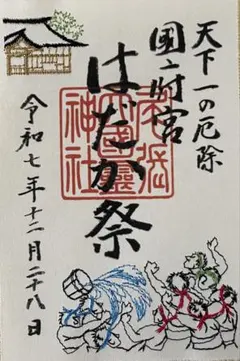 天下一の厄除
国府宮
はだか祭
尾張
大國霊
神社
令和七年十二月二十八日